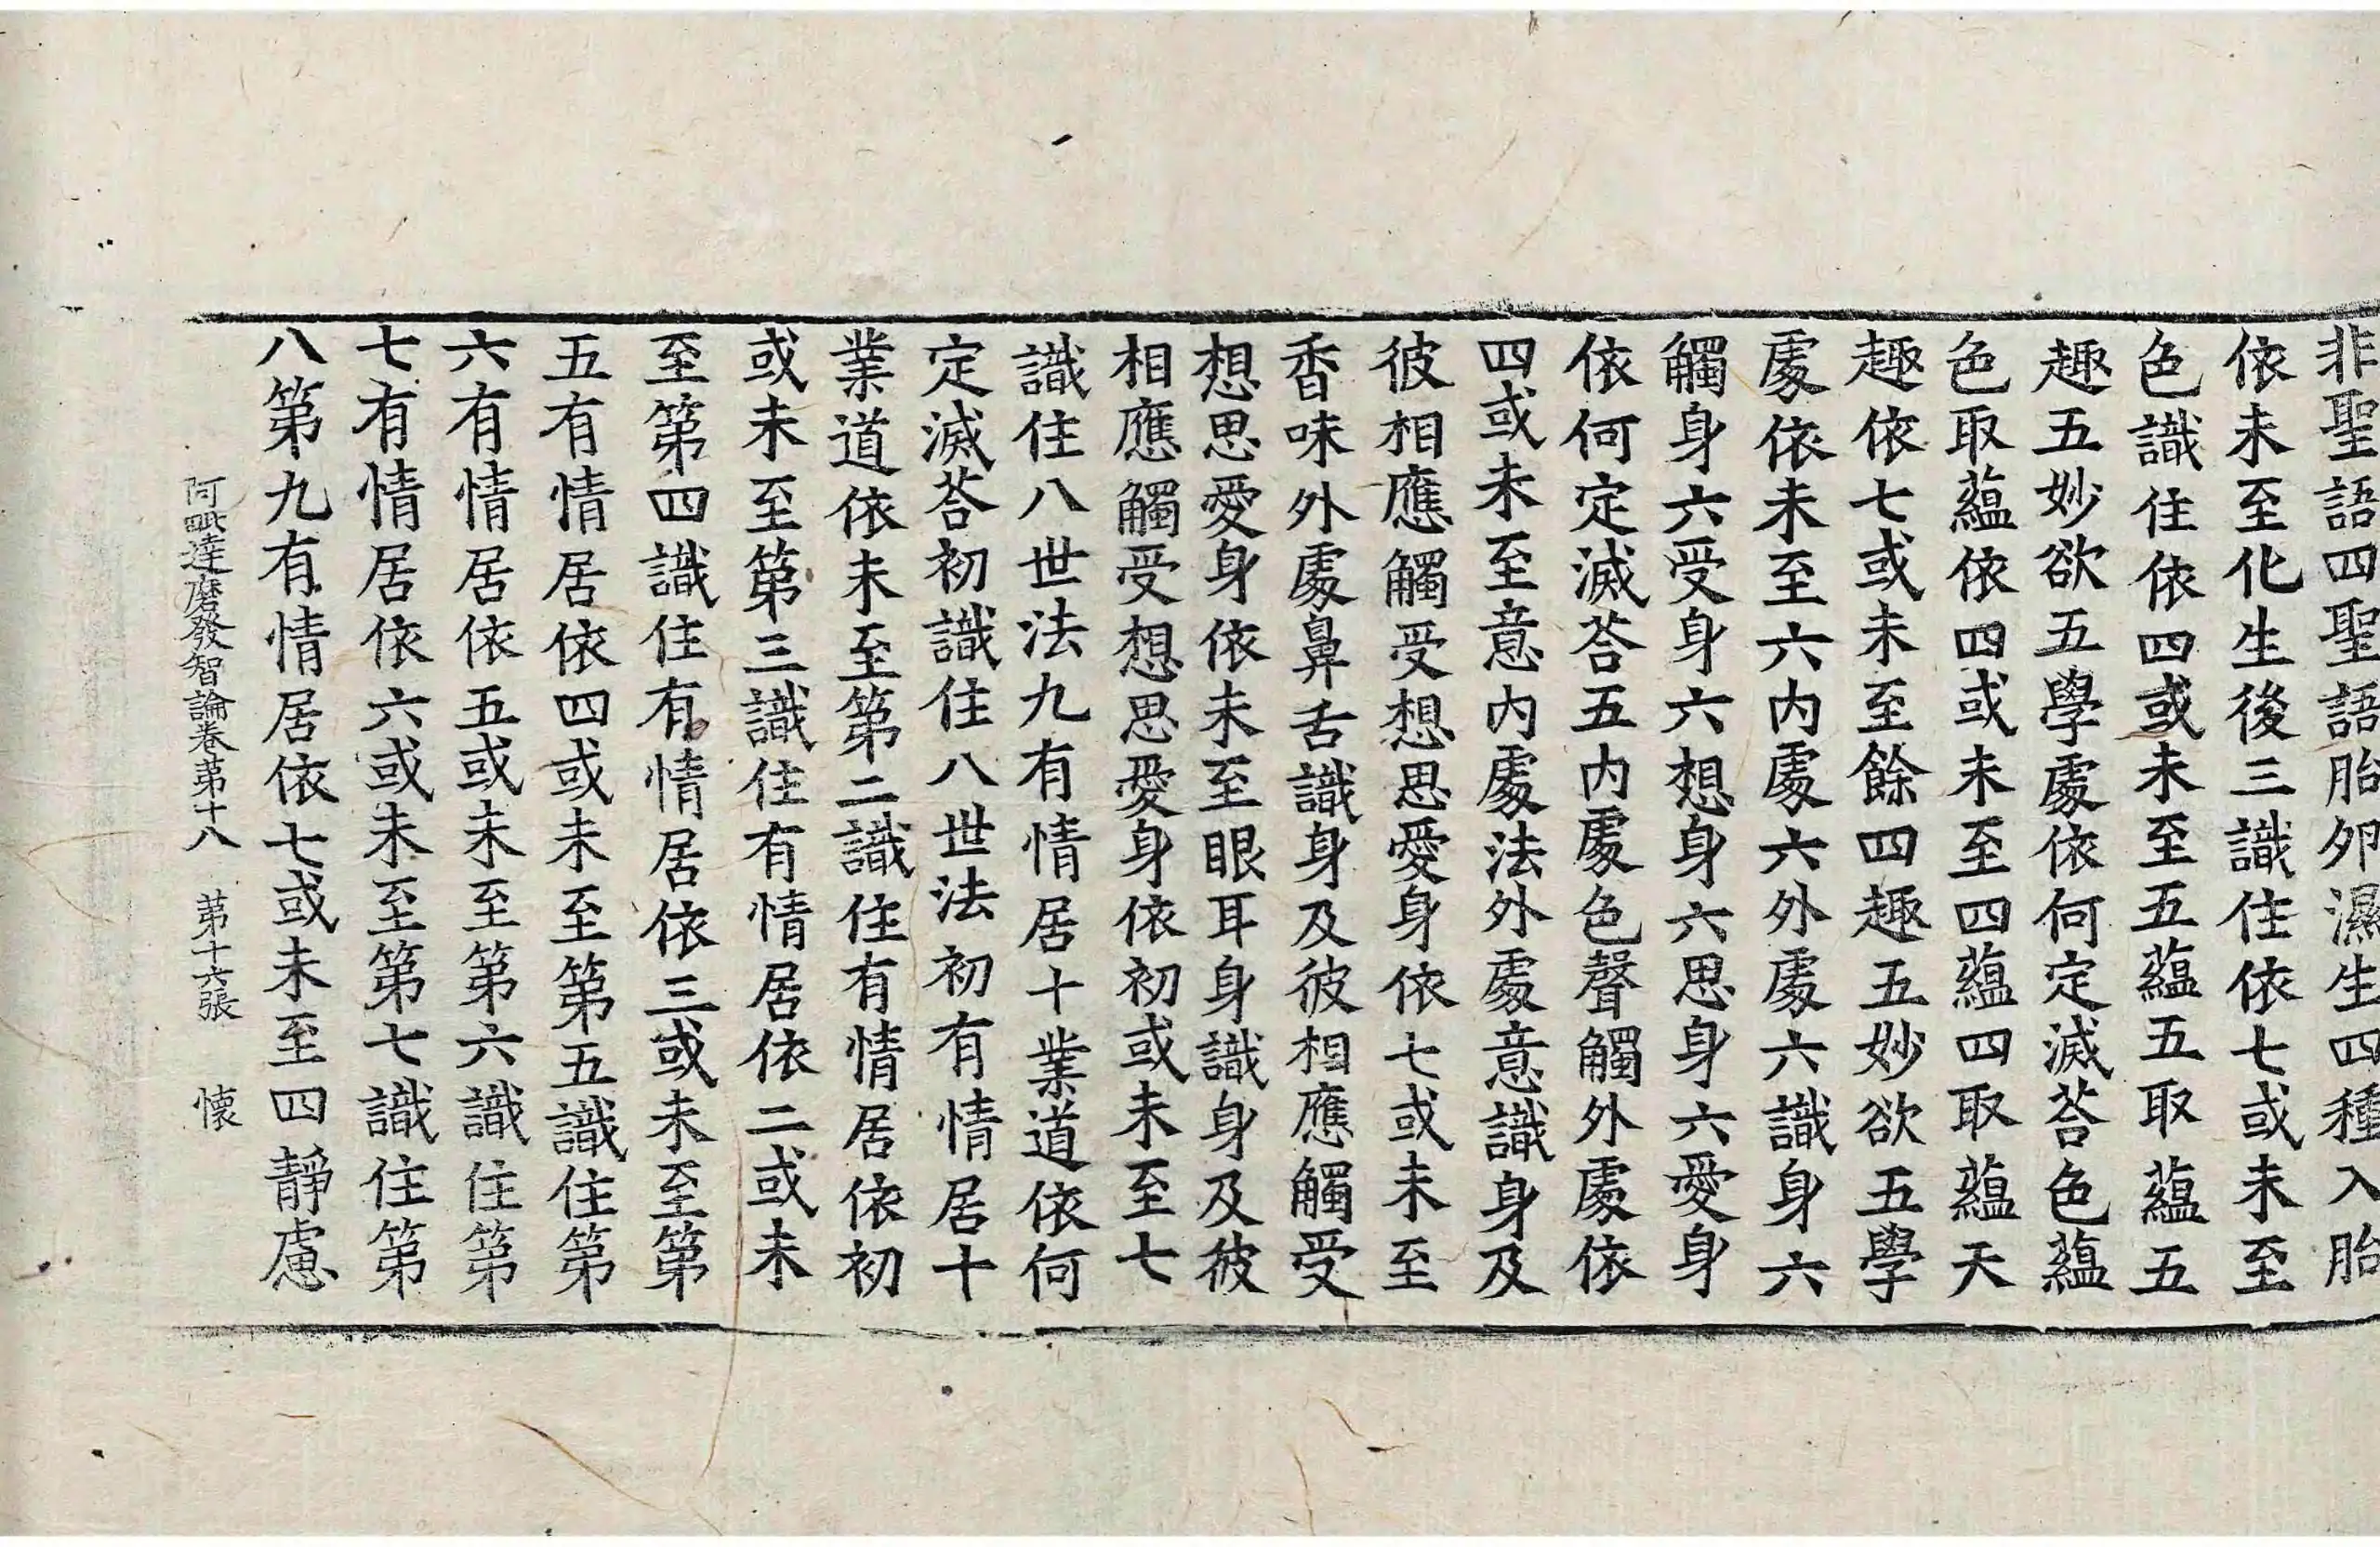 非聖語四聖語胎卵濕生四種入胎
依未至化生後三識住依七或未至
色識住依四或未至五蘊五取蘊五
趣五妙欲五學處依何定滅荅色蘊
色取蘊依四或未至四蘊四取蘊天
趣依七或未至餘四趣五妙欲五學
處依未至六內處六外處六識身六
觸身六受身六想身六思身六愛身
依何定滅荅五內處色聲觸外處依
四或未至意內處法外處意識身及
彼相應觸受想思愛身依七或未至
香味外處鼻舌識身及彼相應觸受
想思愛身依未至眼耳身識身及彼
相應觸受想思愛身依初或未至七
識住八世法九有情居十業道依何
定滅荅初識住八世法初有情居十
業道依未至第二識住有情居依初
或未至第三識住有情居依二或未
至第四識住有情居依三或未至第
五有情居依四或未至第五識住第
六有情居依五或未至第六識住第
七有情居依六或未至第七識住第
八第九有情居依七或未至四靜慮
阿毗達磨發智論卷苐十八 苐十六張 懷